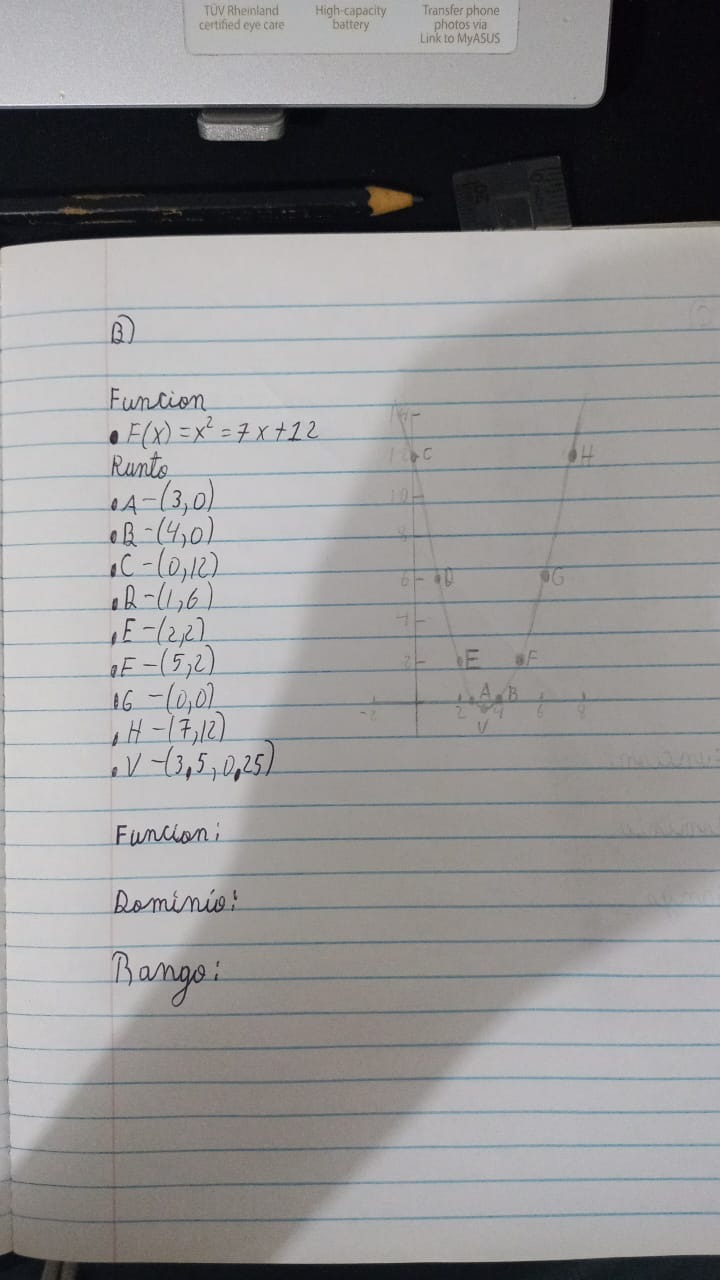 TÜV Rheinland
certified eye care
High-capacity
battery
Transfer phone
photos via
Link to MyASUS
B)
Funcion
• F(x) = x² = 7x+12
Runto
• A-(3,0)
• B-(4,0)
• C-(0,12)
• R-(1,6)
• E-(2,2)
• F-(5,2)
• G-(0,0)
• H-(7,12)
• V-(3,5,0,25)
Funcion:
Rominio:
Rango:
14
12 C H
10
8
6 D G
4
2 E F
A B
-2 2 4 6 8
V